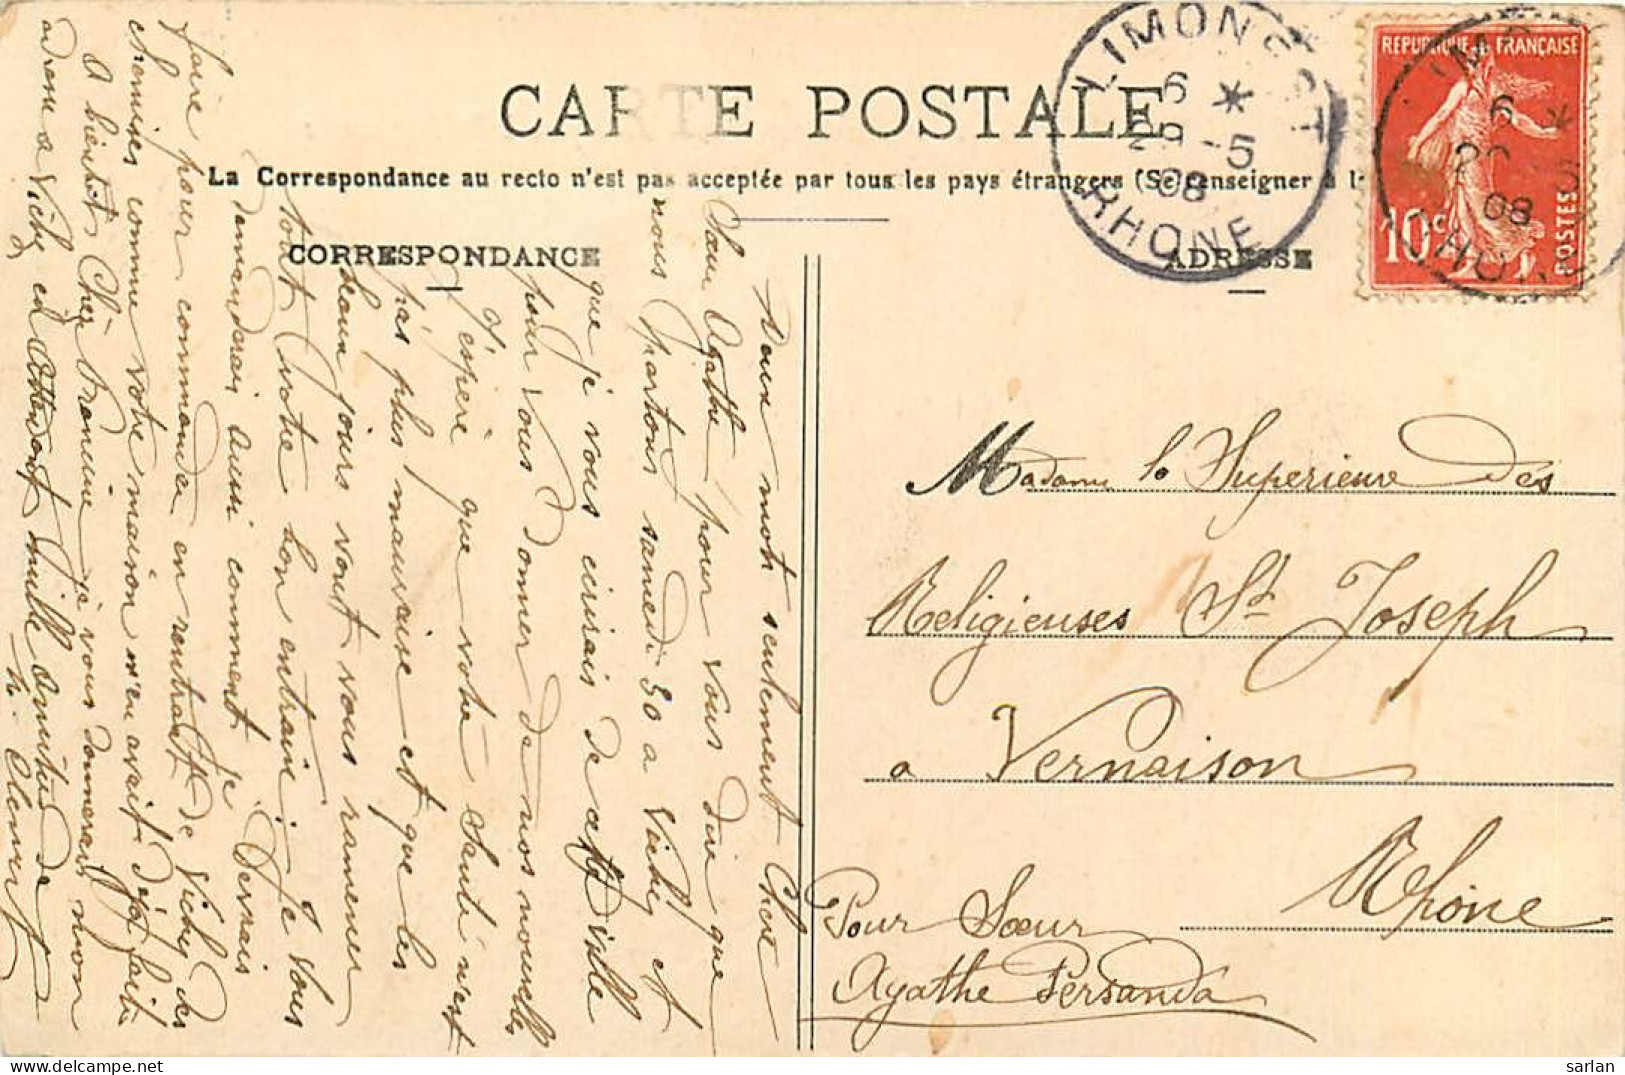 CARTE POSTALE
La Correspondance au recto n'est pas acceptée par tous les pays étrangers (Se renseigner à la
CORRESPONDANCE
ADRESSE
LIMONEST
6 *
29 -5
08
RHONE
REPUBLIQUE FRANÇAISE
10c
POSTES
6 *
08
Deux mots seulement Chère
Sœur Agathe pour vous dire que
nous partons samedi 30 a Vichy et
que je vous écrirais de cette ville
pour vous donner de nos nouvelles
J'espère que votre santé n'est
pas plus mauvaise et que les
beaux jours vont vous ramener
tout votre bon entrain; Je vous
demanderai aussi comment je devrais
faire pour commander en rentrant de Vichy des
chemises comme votre maison m'en avait déjà faites
A bientôt Chère Francine je vous donnerai mon
adresse a Vichy en attendant mille amitiés de
Madame la Superieure des
Religieuses St Joseph
a Vernaison
Rhône
Pour Sœur
Agathe Persanda
Sarlan